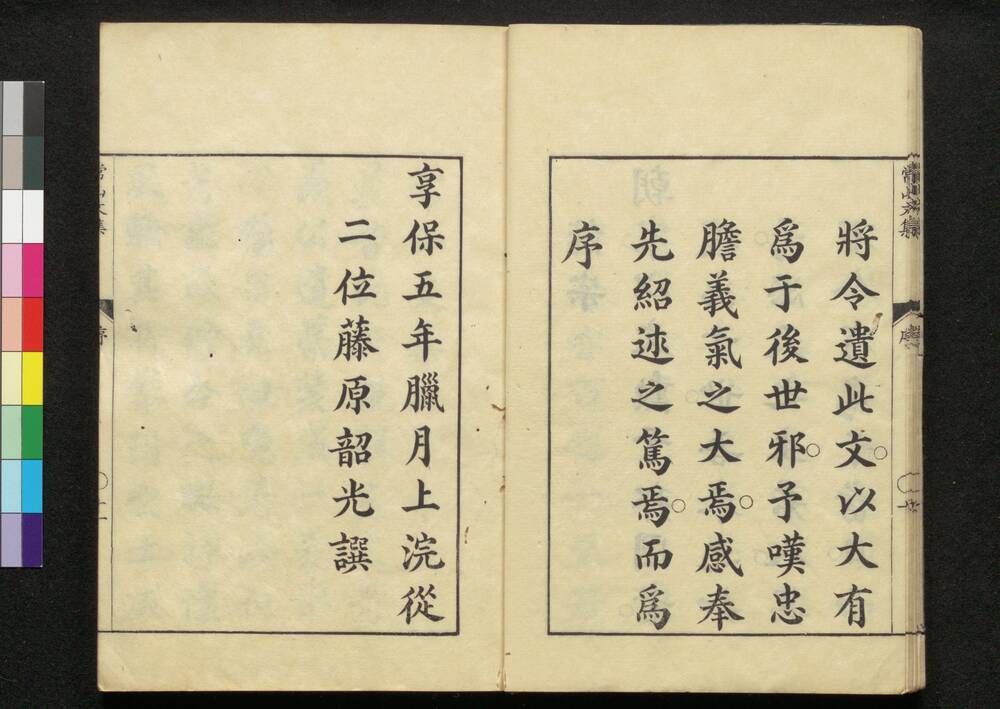 將令遺此文以大有
爲于後世邪予嘆忠
膽義氣之大焉感奉
先紹述之篤焉而爲
序
享保五年臘月上浣從
二位藤原韶光譔
常山文集
序